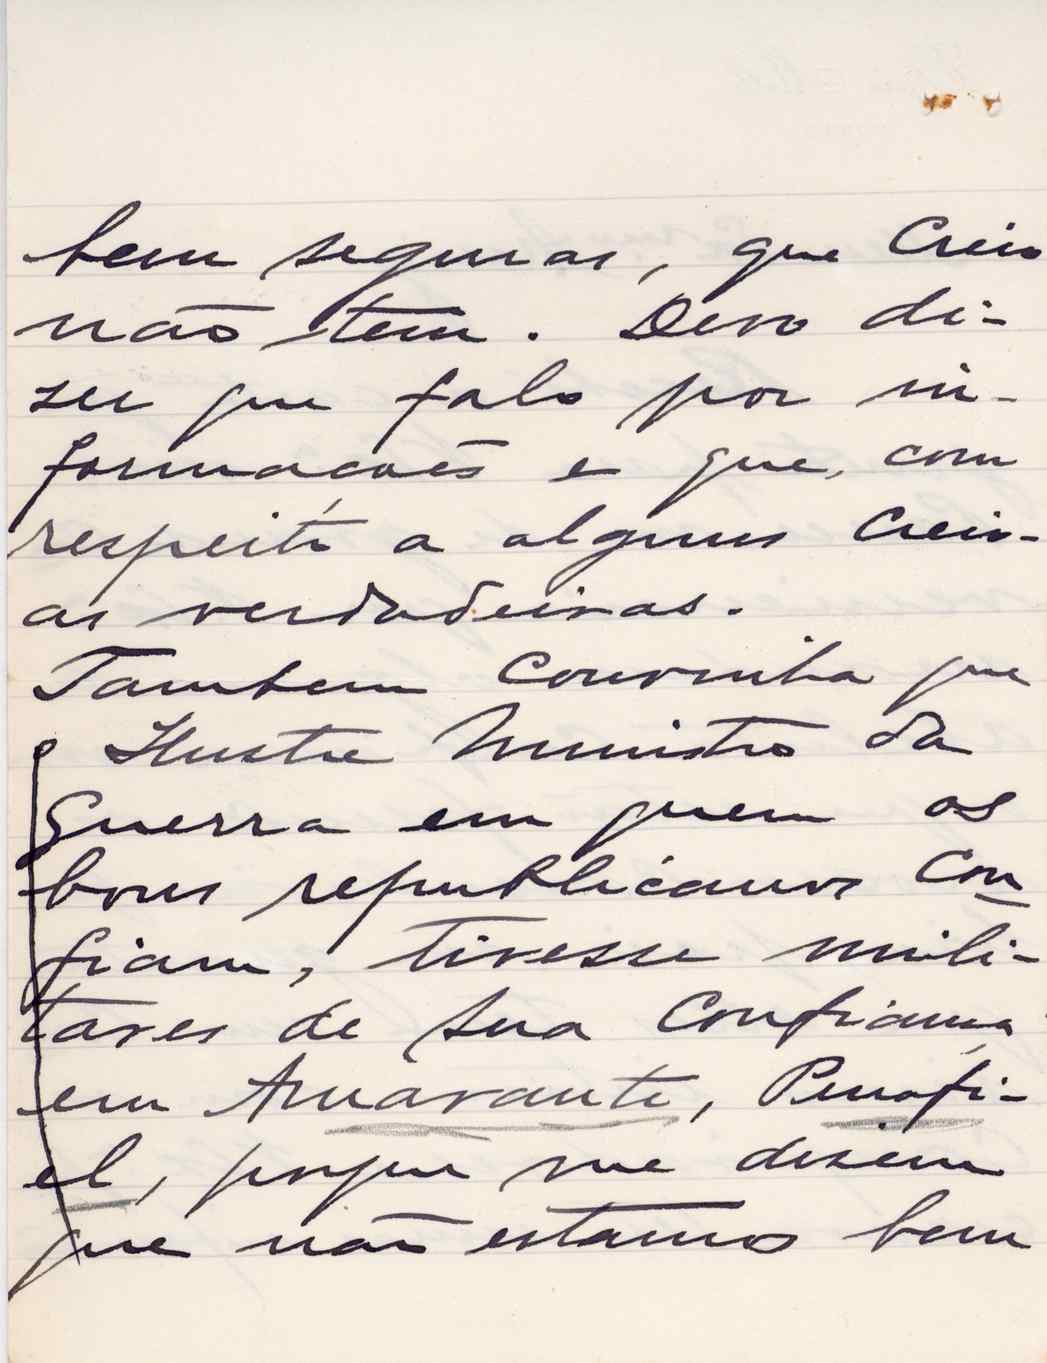 bem seguras, que creio
não tem. Devo di-
zer que falo por in-
formacoẽs e que, com
respeito a alguns creio-
as verdadeiras.
Tambem convinha que
o Ilustre Ministro da
Guerra em quem os
bons republicanos con
fiam, tivesse mili-
tares de sua confiança
em Amarante, Penafi-
el, porque me dizem
que não estamos bem